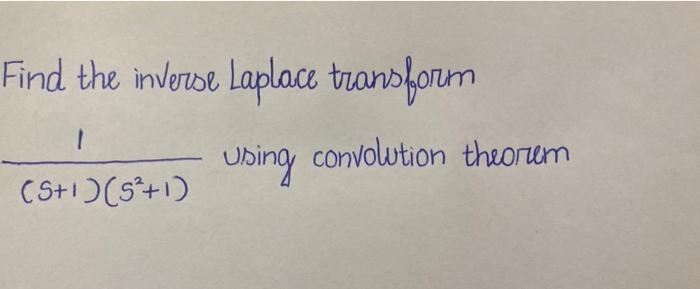 Find the inverse Laplace transform
1
(S+1)(S²+1) using convolution theorem